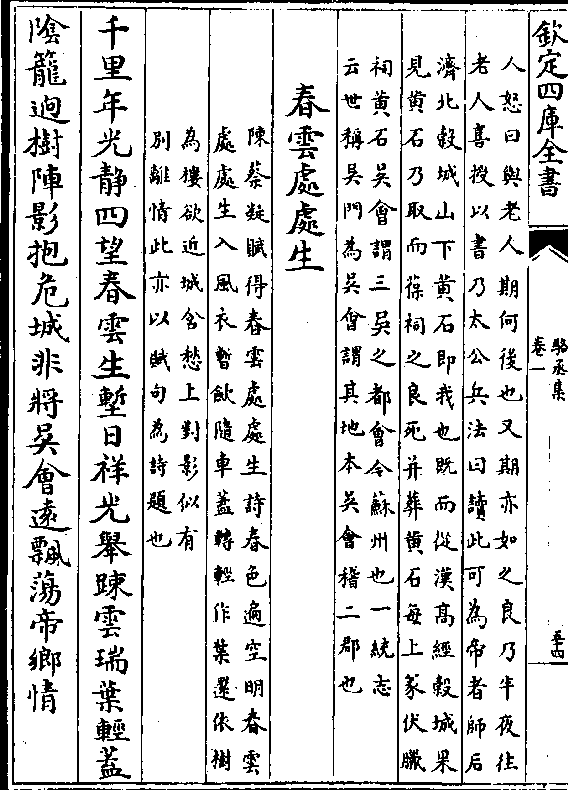 欽定四庫全書
駱丞集
卷一
五十四
人怒曰與老人期何後也又期亦如之良乃半夜往
老人喜授以書乃太公兵法曰讀此可為帝者師后
濟北穀城山下黄石即我也既而從漢高經穀城果
見黄石乃取而葆祠之良死并葬黄石每上冢伏臘
祠黄石吴會謂三吴之都會今蘇州也一統志
云世稱吴門為吴會謂其地本吴會稽二郡也
春雲處處生
陳蔡凝賦得春雲處處生詩春色遍空明春雲
處處生入風衣暫歛隨車蓋轉輕作葉還依樹
為樓欲近城含愁上對影似有
別離情此亦以賦句為詩題也
千里年光静四望春雲生塹日祥光舉踈雲瑞葉輕蓋
陰籠迥樹陣影抱危城非將吴會遠飄蕩帝鄉情